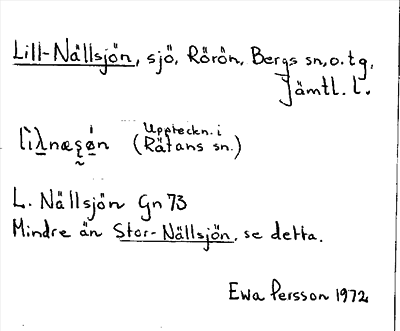 Lill-Nällsjön, sjö, Rörön, Bergs sn, o. tg,
Jämtl. l.
(Uppteckn. i
Rätans sn.)
L. Nällsjön Gn 73
Mindre än Stor-Nällsjön, se detta.
Ewa Persson 1972